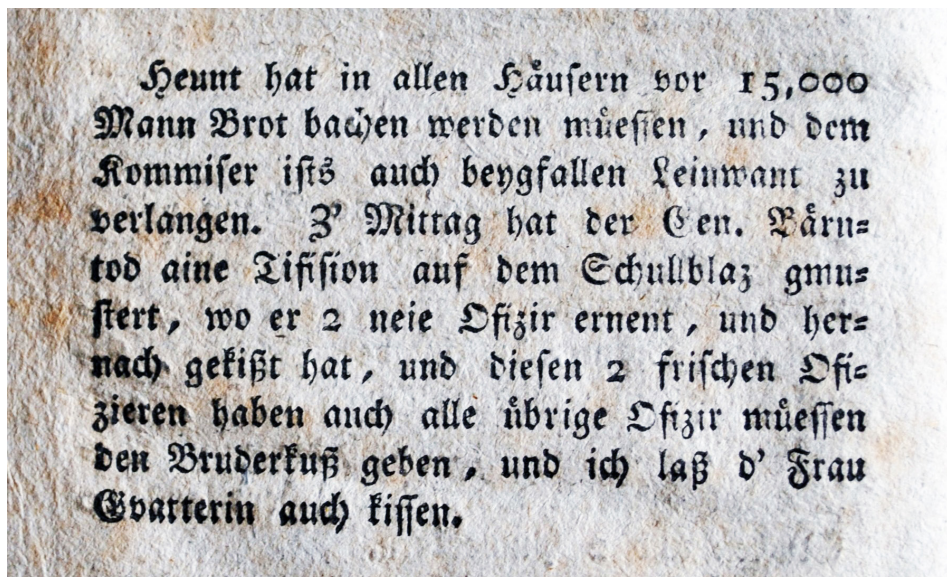 Heunt hat in allen Häuſern vor 15,000
Mann Brot bachen werden müeſſen, und dem
Kommiſer iſts auch beygfallen Leinwant zu
verlangen. Z' Mittag hat der Gen. Bärn⸗
tod aine Tifiſion auf dem Schullblaz gmu⸗
ſtert, wo er 2 neie Ofizir ernent, und her⸗
nach gekißt hat, und dieſen 2 friſchen Ofi⸗
zieren haben auch alle übrige Ofizir müeſſen
den Bruderkuß geben, und ich laß d' Frau
Gvatterin auch kiſſen.